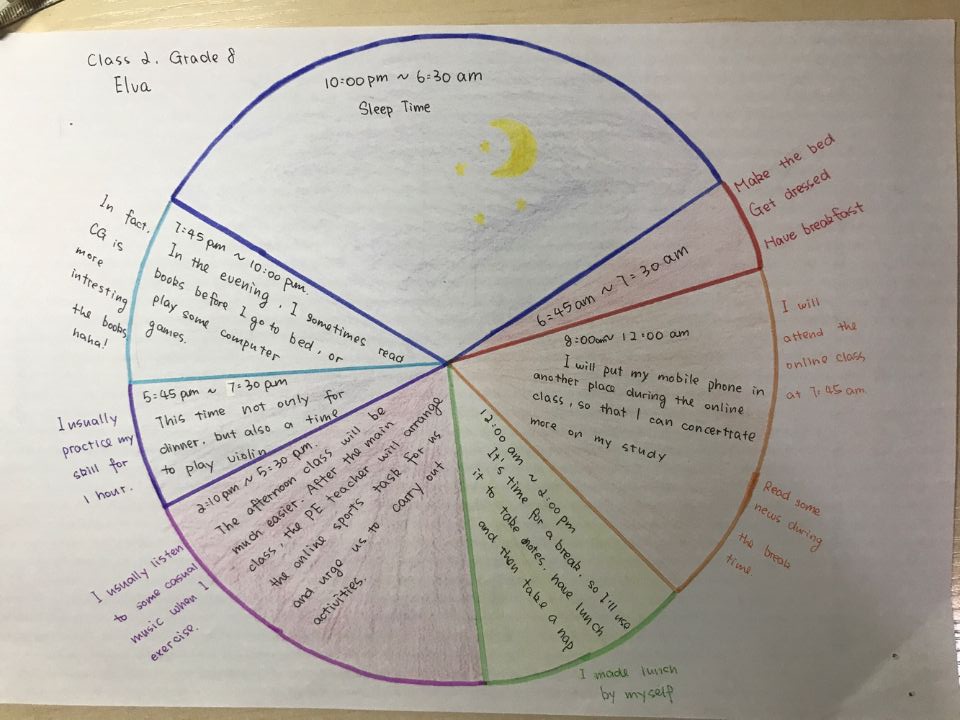 Class 2. Grade 8
Elva
10:00 pm ~ 6:30 am
Sleep Time
Make the bed
Get dressed
Have breakfast
6:45 am ~ 7:30 am
8:00am~ 12:00 am
I will put my mobile phone in
another place during the online
class, so that I can concertrate
more on my study
I will
attend the
online class
at 7:45 am
Read some
news during
the break
time
12:00 am ~ 2:00 pm
It's time for a break, so I'll use
it to take notes, have lunch
and then take a nap
I made lunch
by myself
2:10 pm ~ 5:30 pm.
The afternoon class will be
much easier. After the main
class, the PE teacher will arrange
the online sports task for us
and urge us to carry out
activities.
I usually listen
to some casual
music when I
exercise.
5:45 pm ~ 7:30 pm
This time not only for
dinner, but also a time
to play violin
I usually
practice my
skill for
1 hour.
7:45 pm ~ 10:00 pm.
In the evening, I sometimes read
books before I go to bed, or
play some computer
games.
In fact.
CG is
more
intresting
the books,
haha!